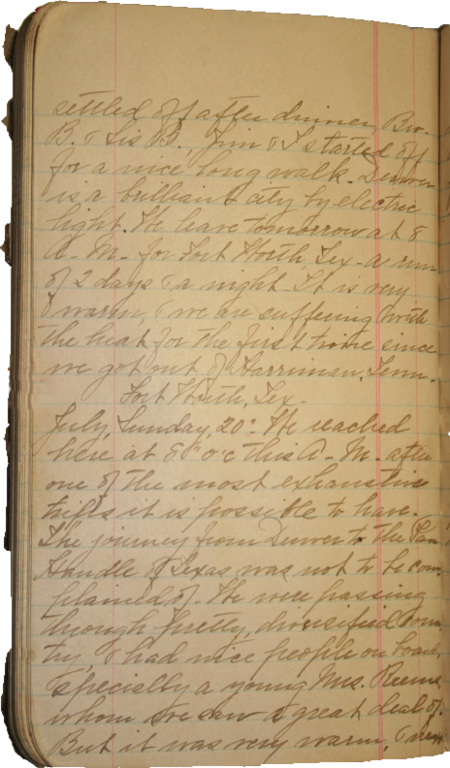 settled off after dinner, Bro.
B. & Sis B., Jim & I started off
for a nice long walk. Denver
is a brilliant city by electric
light. We leave tomorrow at 8
A. M. for Fort Worth, Tex. a run
of 2 days & a night. It is very
warm, & we are suffering with
the heat for the first time since
we got out of Harriman, Tenn.
Fort Worth, Tex.
July, Sunday, 20". We reached
here at 8 o'c this A. M. after
one of the most exhaustive
trips it is possible to have.
The journey from Denver to the Pan
Handle of Texas was not to be com
plained of. We were passing
through pretty, diversified coun
try, & had nice people on board,
especially a young Mrs. Reeme
whom we saw a great deal of.
But it was very warm, &